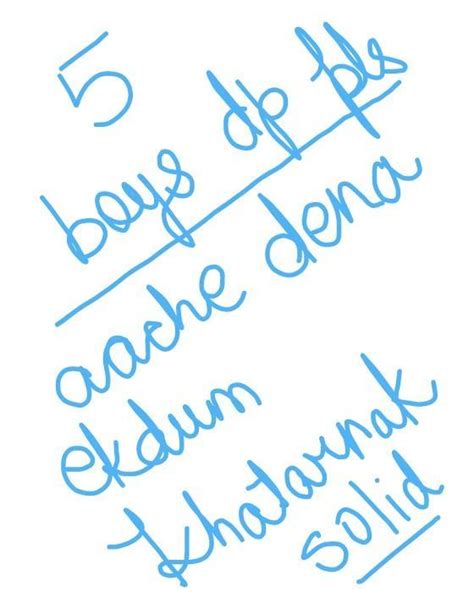 5
boys dp pls
aache dena
ekdum
khatarnak
solid